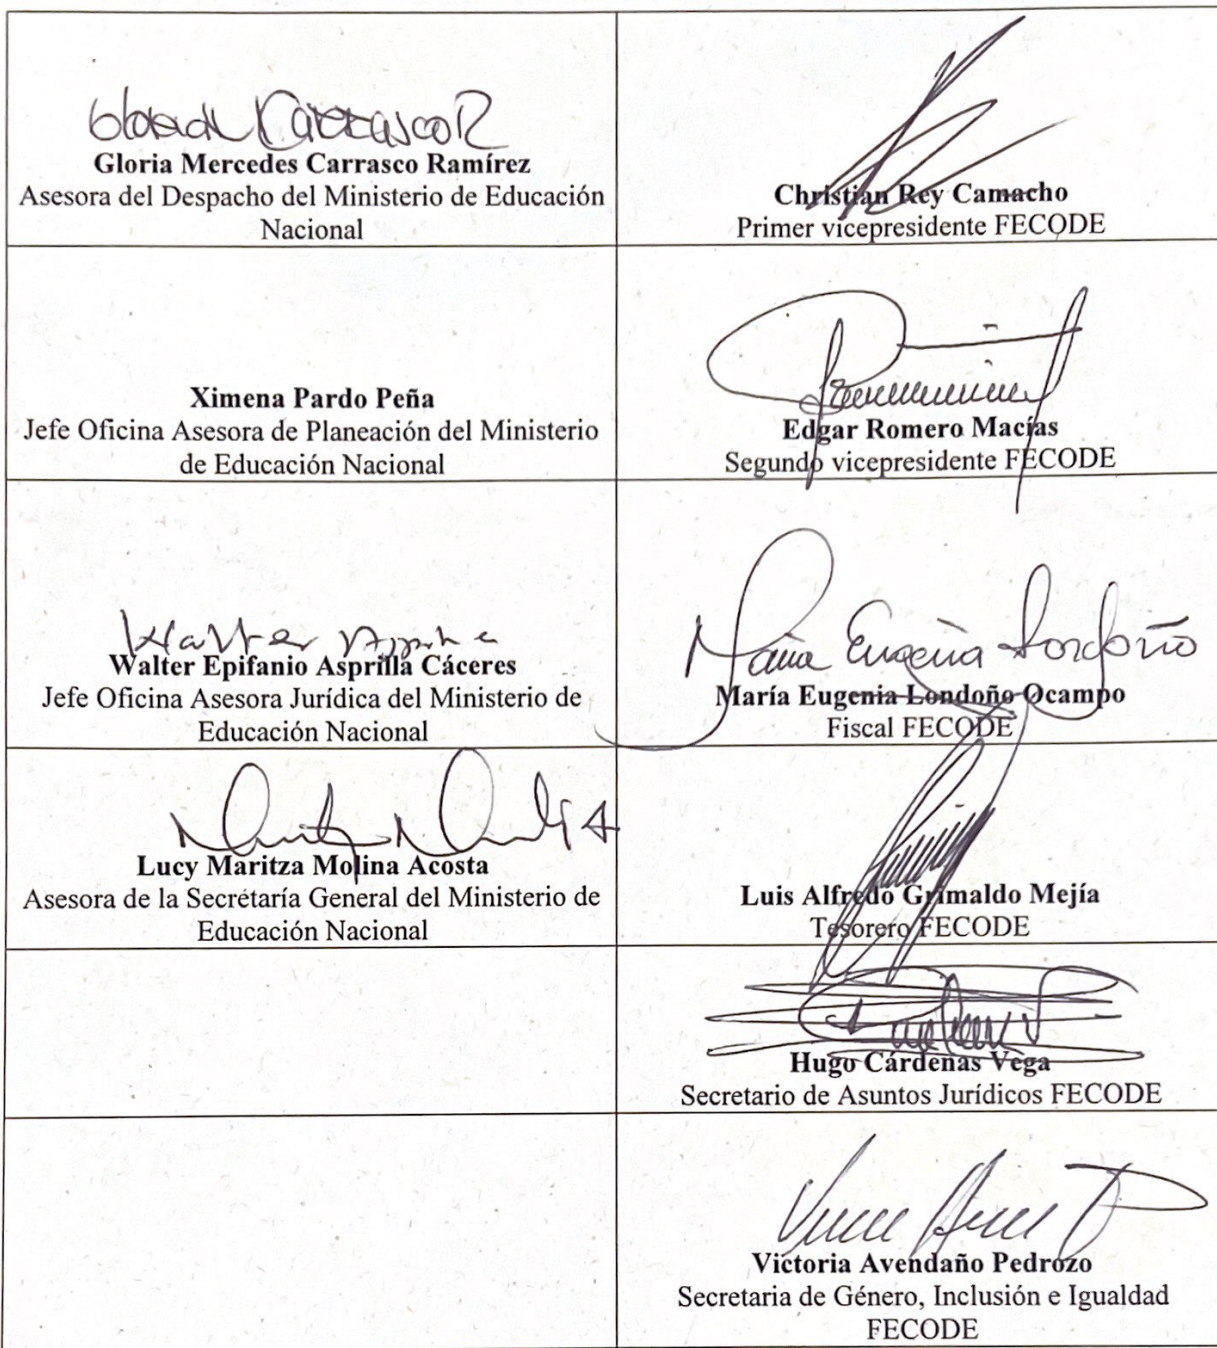 Gloria Carrasco R
Gloria Mercedes Carrasco Ramírez
Asesora del Despacho del Ministerio de Educación
Nacional
Christian Rey Camacho
Primer vicepresidente FECODE
Ximena Pardo Peña
Jefe Oficina Asesora de Planeación del Ministerio
de Educación Nacional
Edgar Romero Macías
Segundo vicepresidente FECODE
Walter Asprilla
Walter Epifanio Asprilla Cáceres
Jefe Oficina Asesora Jurídica del Ministerio de
Educación Nacional
María Eugenia Londoño
María Eugenia Londoño Ocampo
Fiscal FECODE
Lucy Maritza Molina Acosta
Asesora de la Secretaría General del Ministerio de
Educación Nacional
Luis Alfredo Grimaldo Mejía
Tesorero FECODE
Hugo Cárdenas Vega
Secretario de Asuntos Jurídicos FECODE
Victoria Avendaño Pedrozo
Secretaria de Género, Inclusión e Igualdad
FECODE